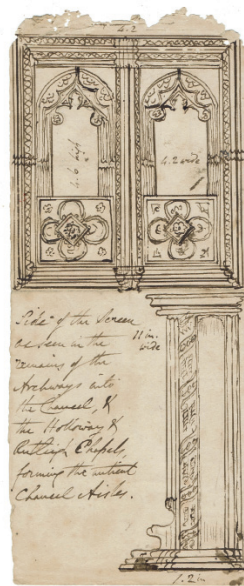 4.2
4.6 high
4.2 wide
Side of the Screen
as seen in the
remains of the
Archways into
the Chancel, &
the Holloway &
Rutleigh Chapels,
forming the antient
Chancel Aisles.
11 in.
wide
1.2 in